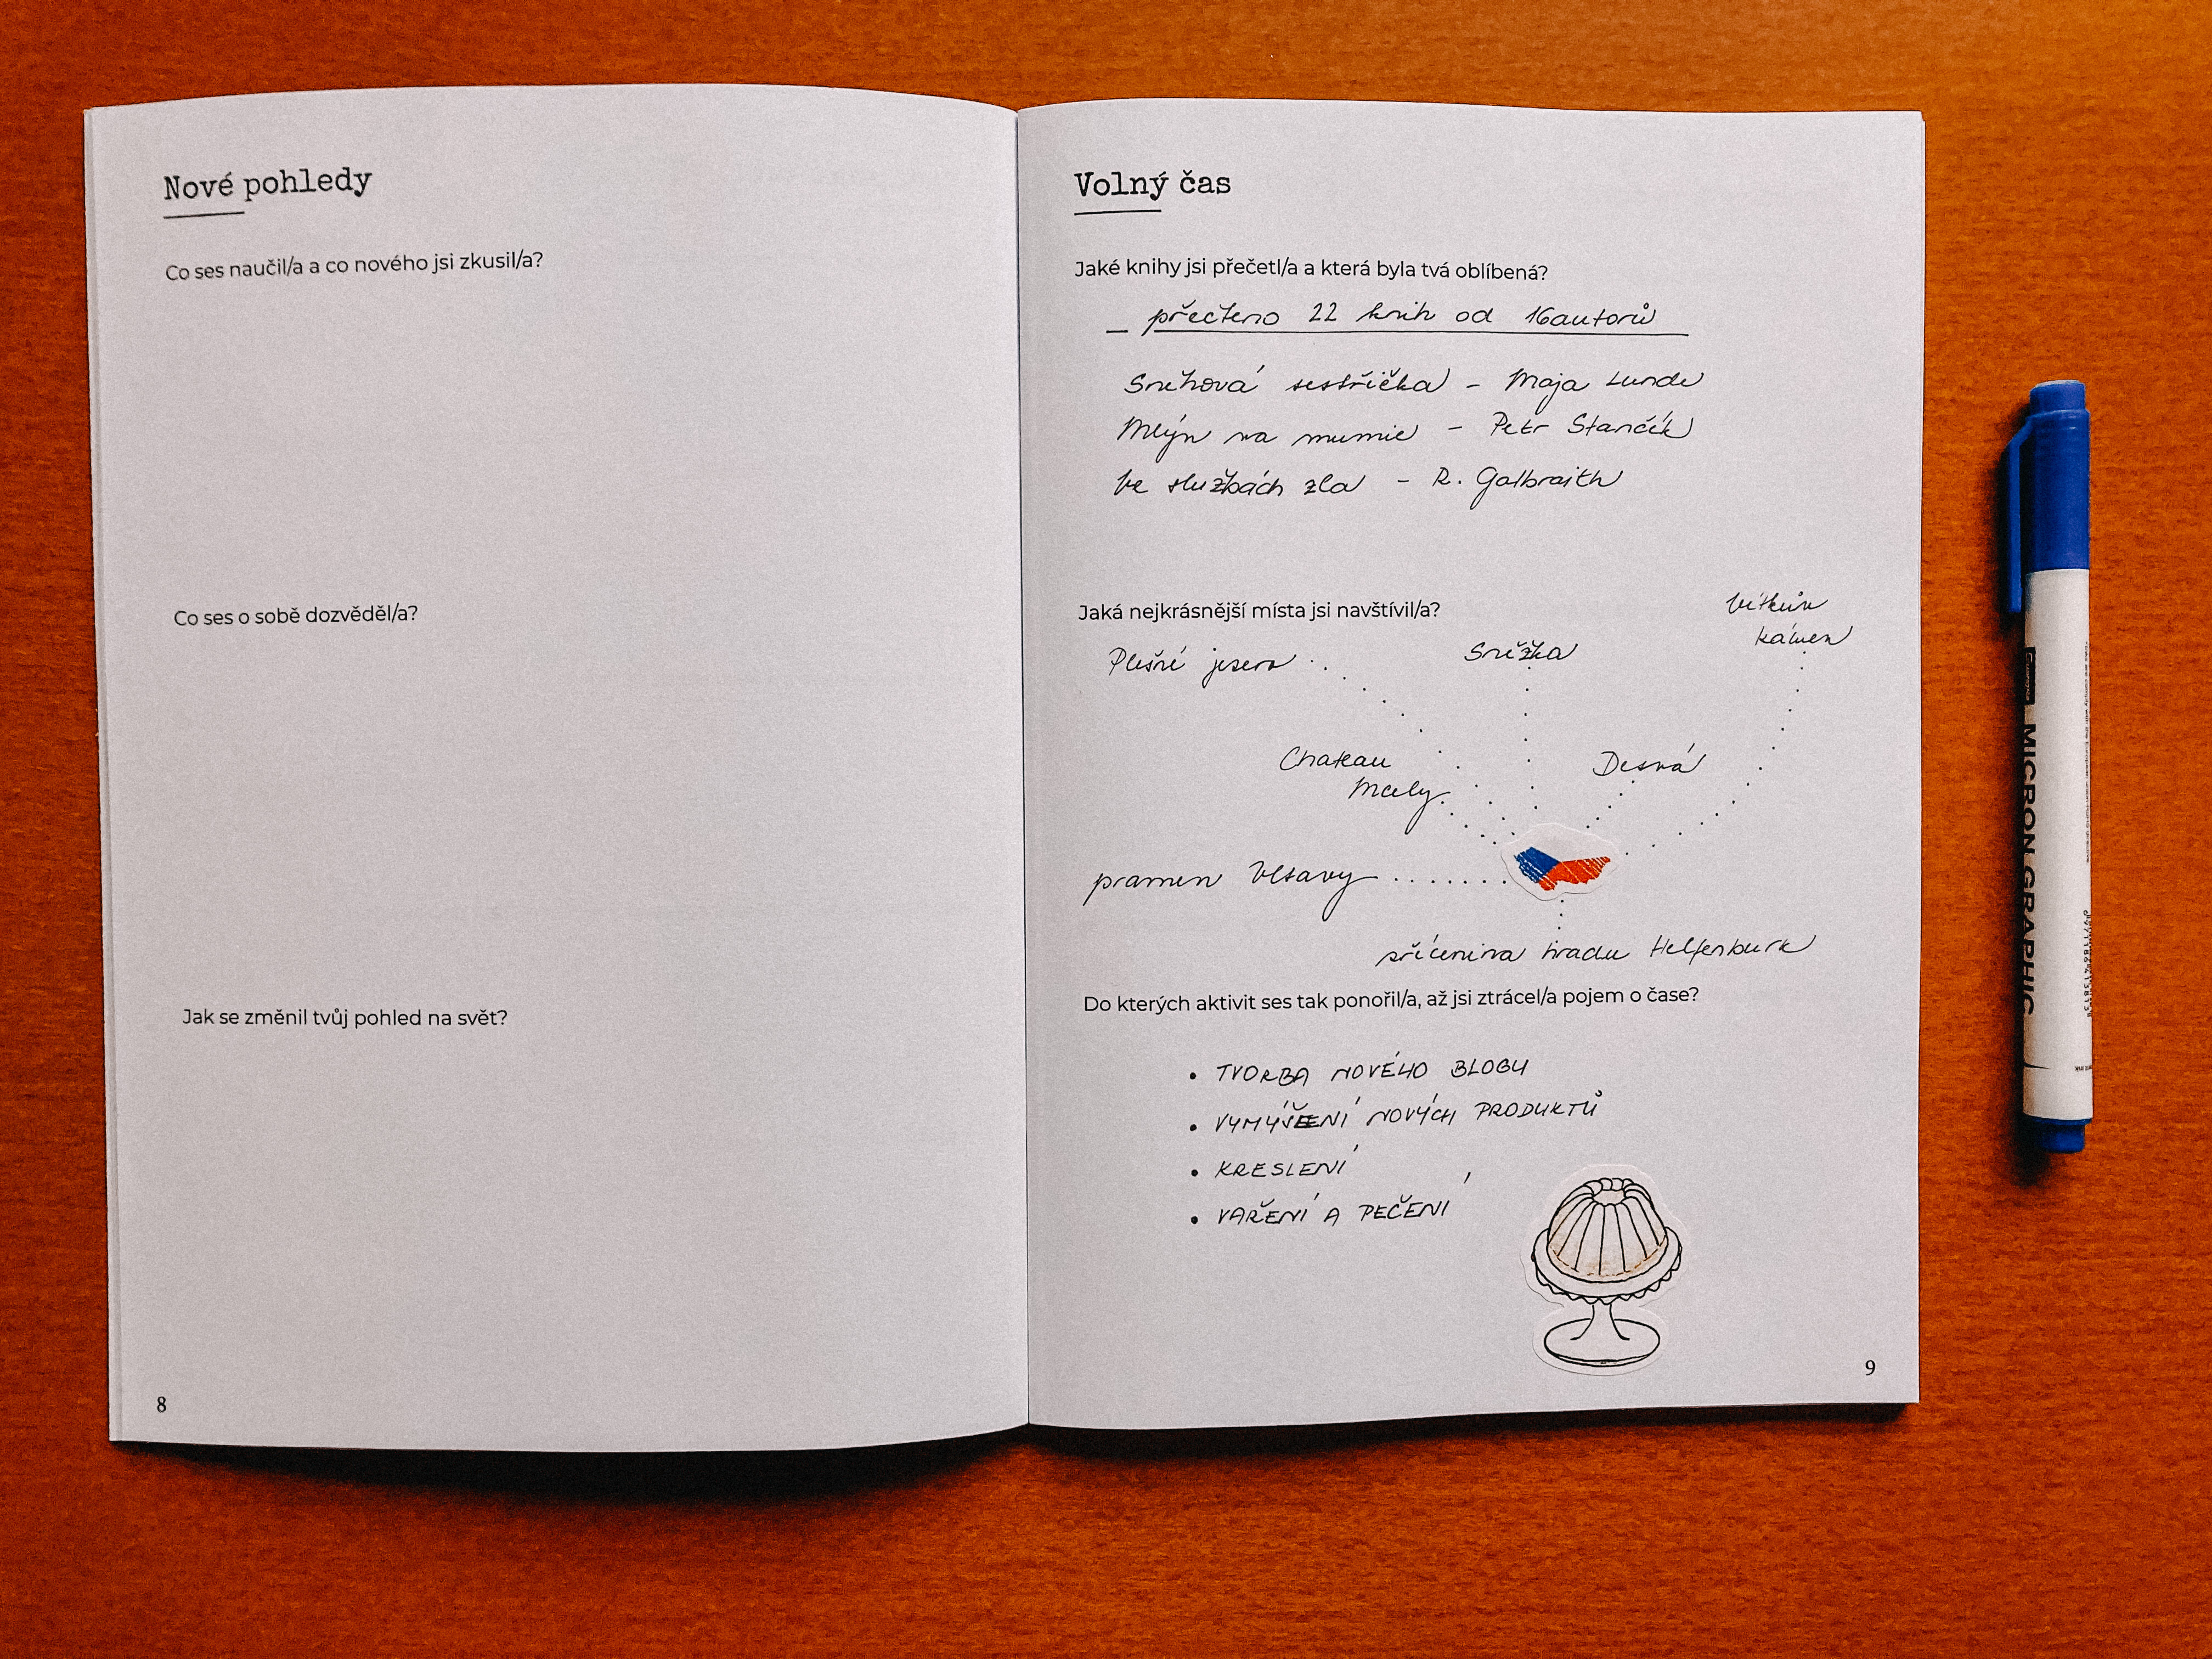 Nové pohledy
Co ses naučil/a a co nového jsi zkusil/a?
Co ses o sobě dozvěděl/a?
Jak se změnil tvůj pohled na svět?
8
Volný čas
Jaké knihy jsi přečetl/a a která byla tvá oblíbená?
přečteno 22 knih od 16 autorů
Sněhová sestřička - Maja Lunde
Mlýn na mumie - Petr Stančík
Ve službách zla - R. Galbraith
Jaká nejkrásnější místa jsi navštívil/a?
Vítkův
kámen
Plešné jezero
Sněžka
Chateau
Mcely
Desná
pramen Vltavy
zřícenina hradu Helfenburk
Do kterých aktivit ses tak ponořil/a, až jsi ztrácel/a pojem o čase?
• TVORBA NOVÉHO BLOGU
• VYMÝŠLENÍ NOVÝCH PRODUKTŮ
• KRESLENÍ
• VAŘENÍ A PEČENÍ
9
MICRON GRAPHIC